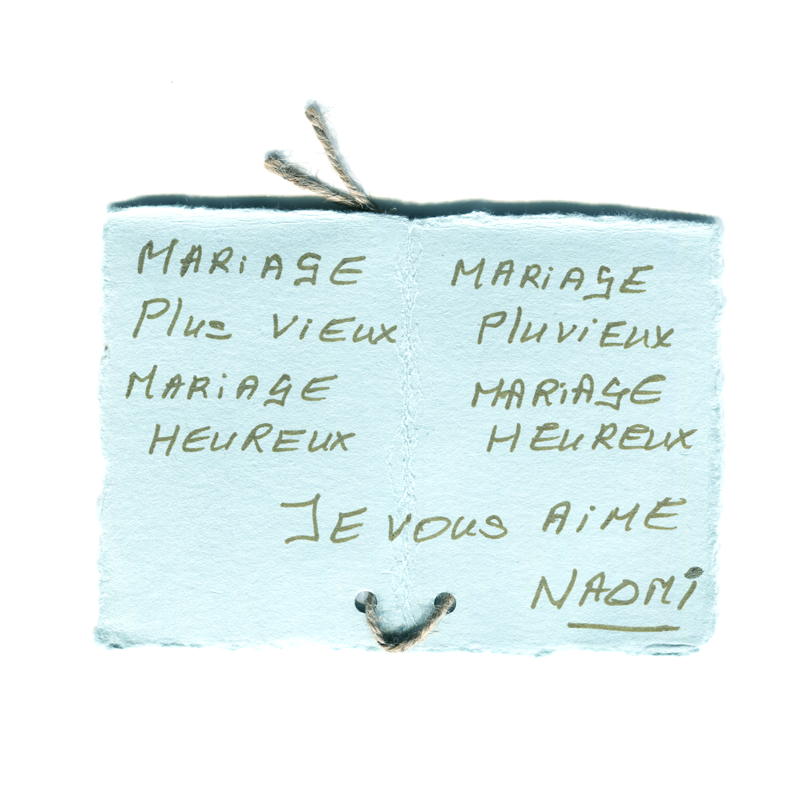 MARiAGE
Plus ViEUX
MARiAGE
HEUREUX
MARiAGE
PluViEUX
MARiAGE
HEUREUX
JE VOUS AiME
NAOMi